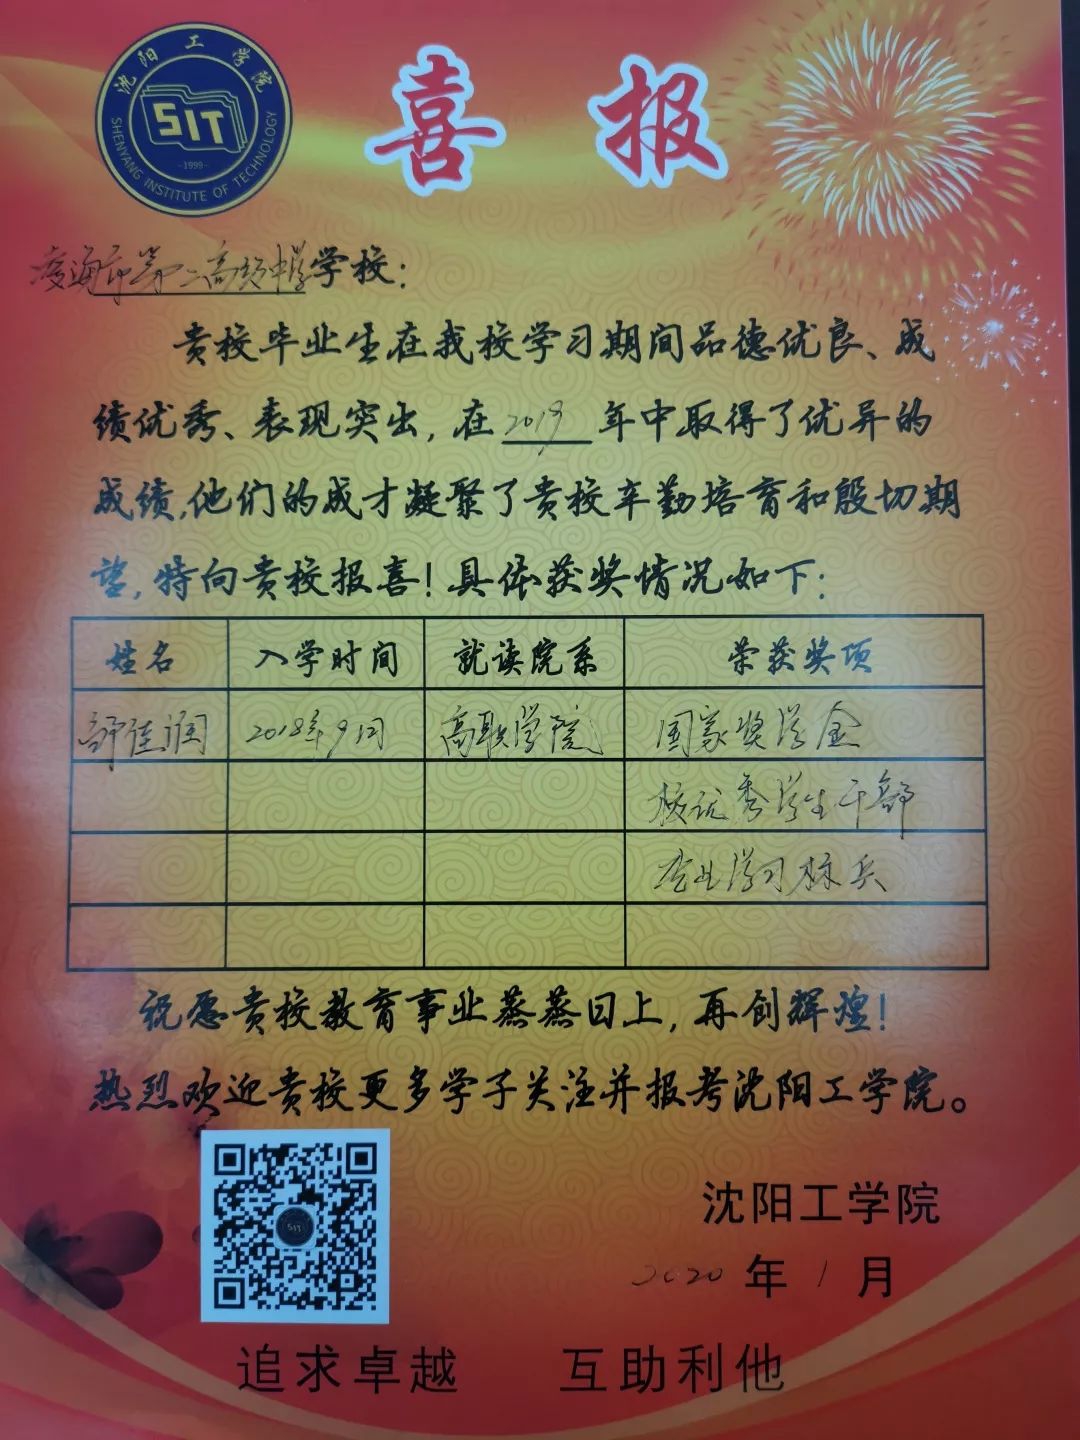 沈阳工学院
SIT
-1999-
SHENYANG INSTITUTE OF TECHNOLOGY
喜报
凌海市第二高级中学学校：
贵校毕业生在我校学习期间品德优良、成
绩优秀、表现突出，在2019年中取得了优异的
成绩，他们的成才凝聚了贵校辛勤培育和殷切期
望，特向贵校报喜！具体获奖情况如下：
姓名 入学时间 就读院系 荣获奖项
佳润 2018年9月 高职学院 国家奖学金
校优秀学生干部
学习标兵
祝愿贵校教育事业蒸蒸日上，再创辉煌！
热烈欢迎贵校更多学子关注并报考沈阳工学院。
SIT
沈阳工学院
2020年1月
追求卓越 互助利他